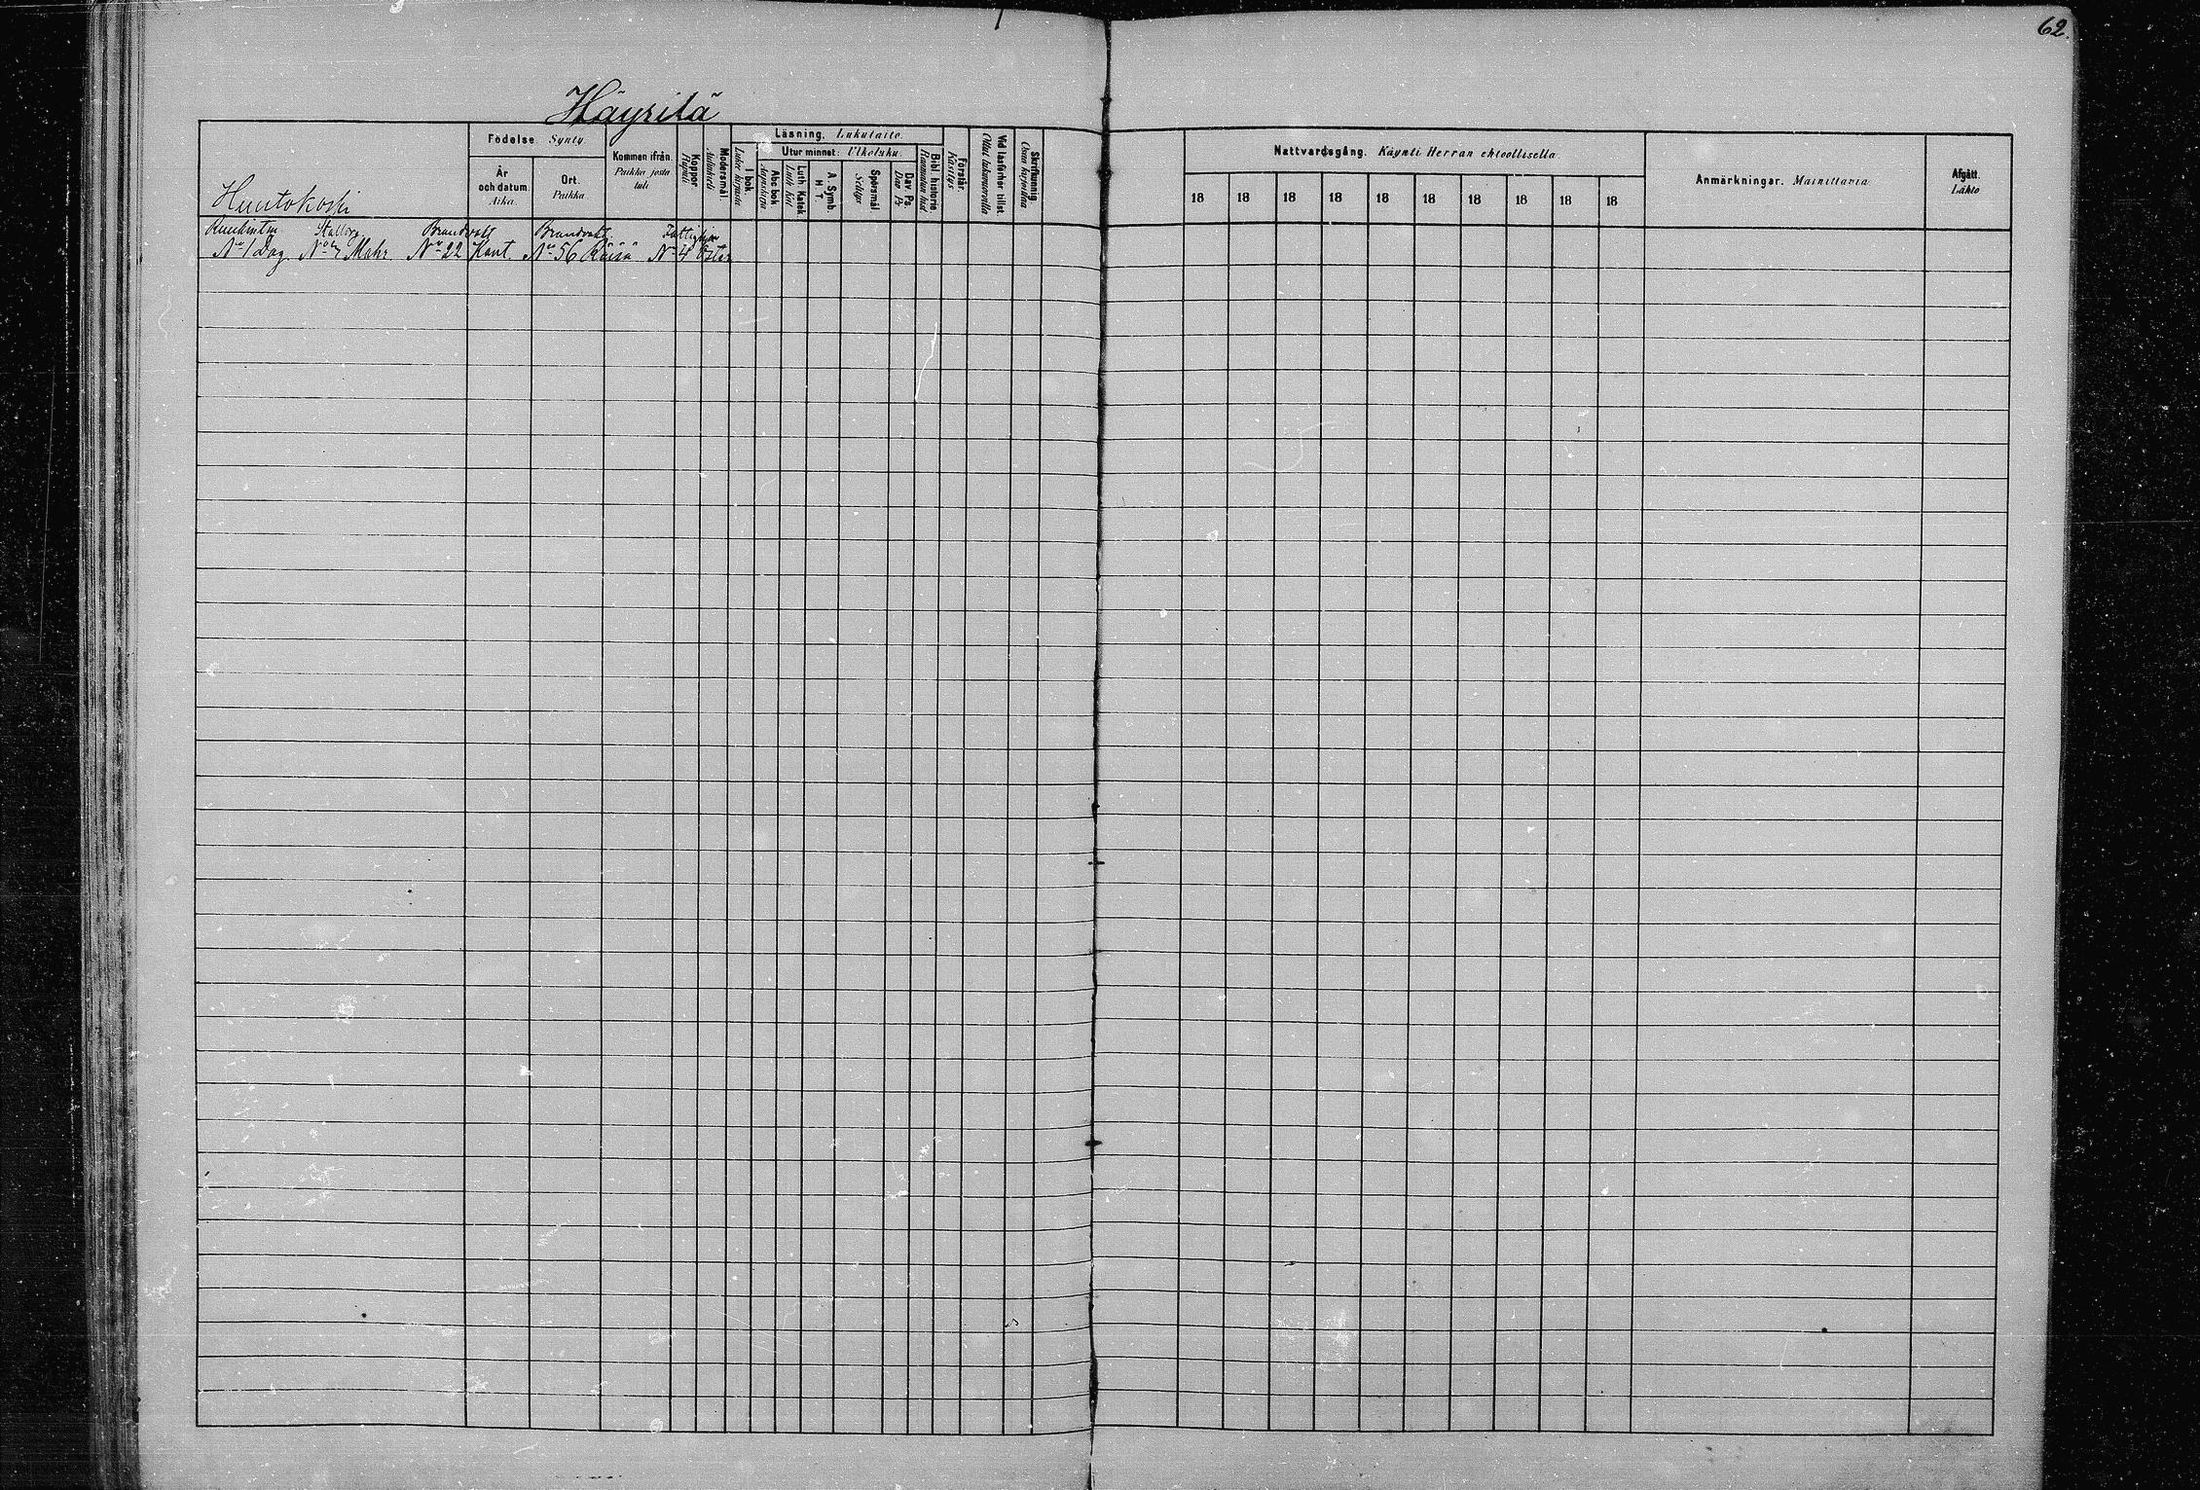 62.
Häyrilä
Huutokoski
Födelse. Synty.
År och datum. Aika.
Ort. Paikka
Kommen ifrån. Paikka josta tuli
Koppor. Rupuli
Modersmål. Äidinkieli
Läsning. Lukutaito.
I bok. Luku kirjasta
Utur minnet. Ulkoluku.
Abc bok. Aapiskirja
Luth. Katek. Luth. Kat.
A. Symb. H T
Spörsmål Selitys
Dav. Ps. Dav. Ps
Bibl. historie
Förstår. Käsitys.
Vid läsförhör tillst. Ollut lukukinkerillä
Skrifkunnig. Osaa kirjoittaa
Nattvardsgång. Käynti Herran ehtoollisella
18 18 18 18 18 18 18 18 18 18
Anmärkningar. Muistettavia
Afgått. Lähtö
Brandvakt Brandvakt
No 1 Dag. No Mahr No 22 Kant. No 56 Räisä No 4